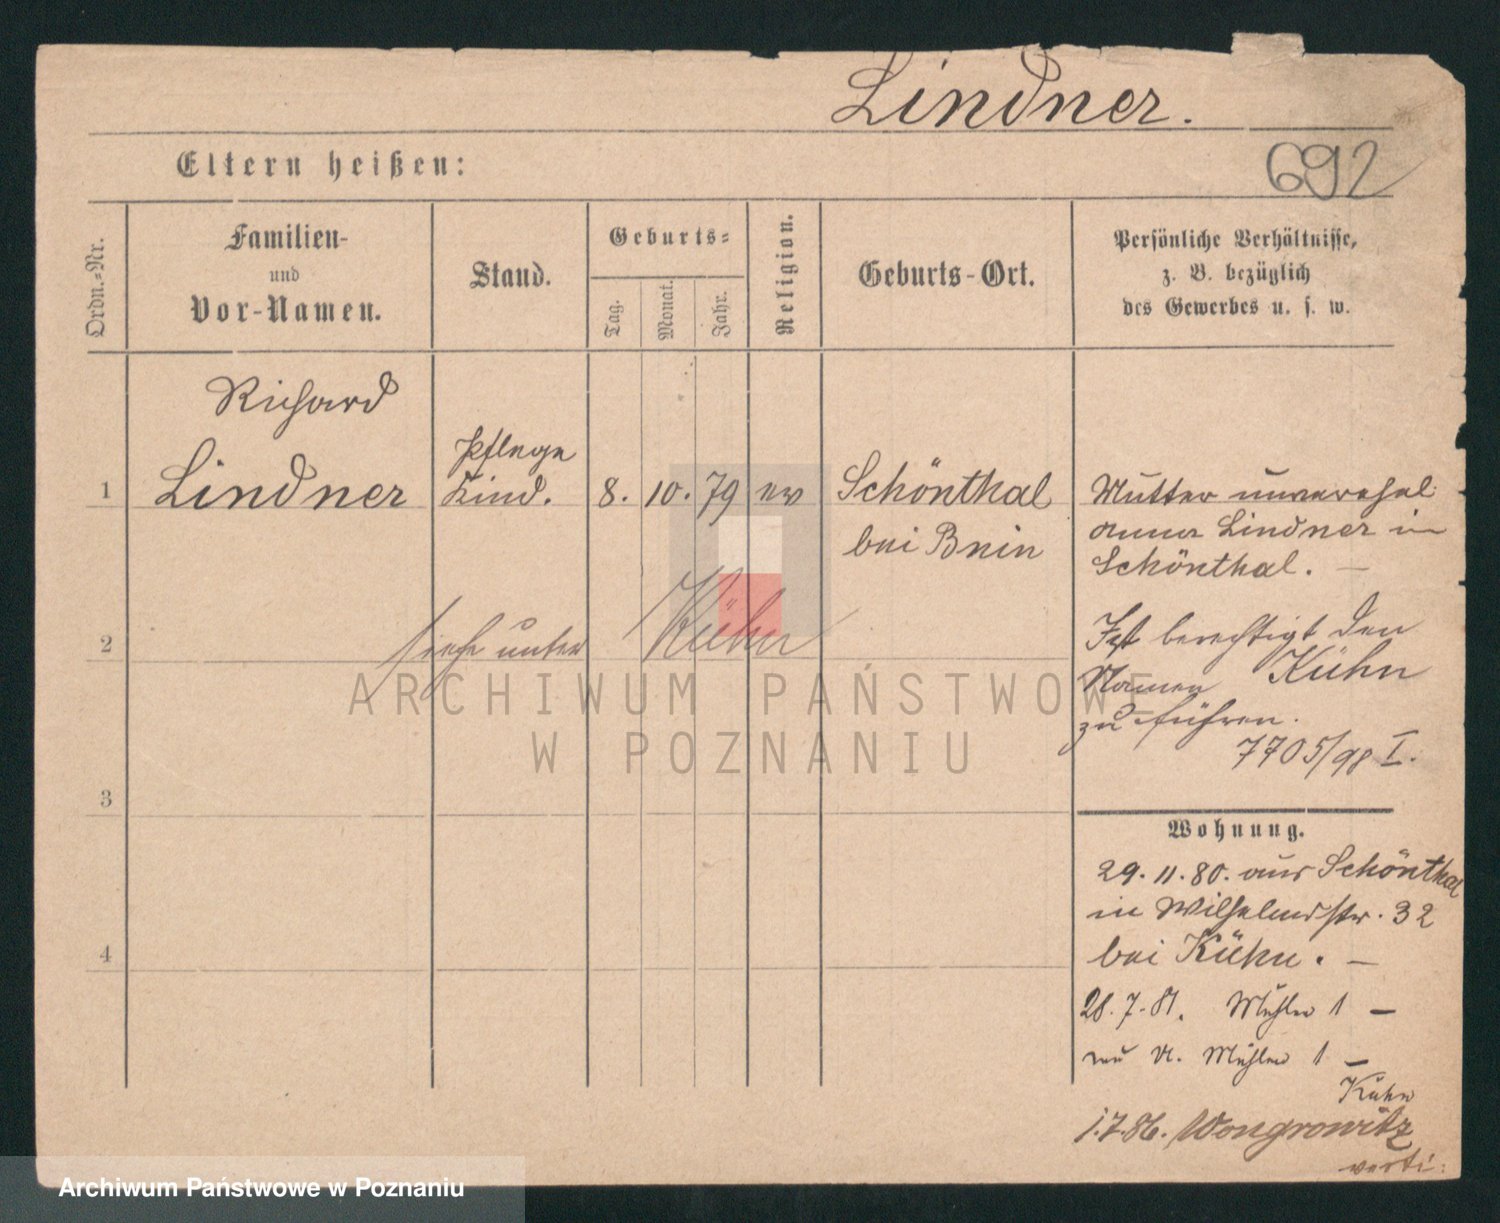 Lindner.
Eltern heißen:
692
Ordn.-Nr.
Familien-
und
Vor-Namen.
Stand.
Geburts-
Tag.
Monat.
Jahr.
Religion.
Geburts-Ort.
Persönliche Verhältnisse,
z. B. bezüglich
des Gewerbes u. s. w.
1
Richard
Lindner
Pflege
Kind.
8. 10. 79
ev
Schönthal
bei Bnin
Mutter unverehel.
Anna Lindner in
Schönthal. —
2
siehe unter Kühn
Ist berechtigt den
Namen Kühn
zu führen.
7705/98 I.
ARCHIWUM PAŃSTWOWE
W POZNANIU
3
Wohnung.
29. 11. 80. aus Schönthal
in Wilhelmstr. 32
bei Kühn. —
4
28. 7. 81. Mühlen 1 —
Mühlen 1 —
Kühn
1.7.86. Wongrowitz
verti:
Archiwum Państwowe w Poznaniu